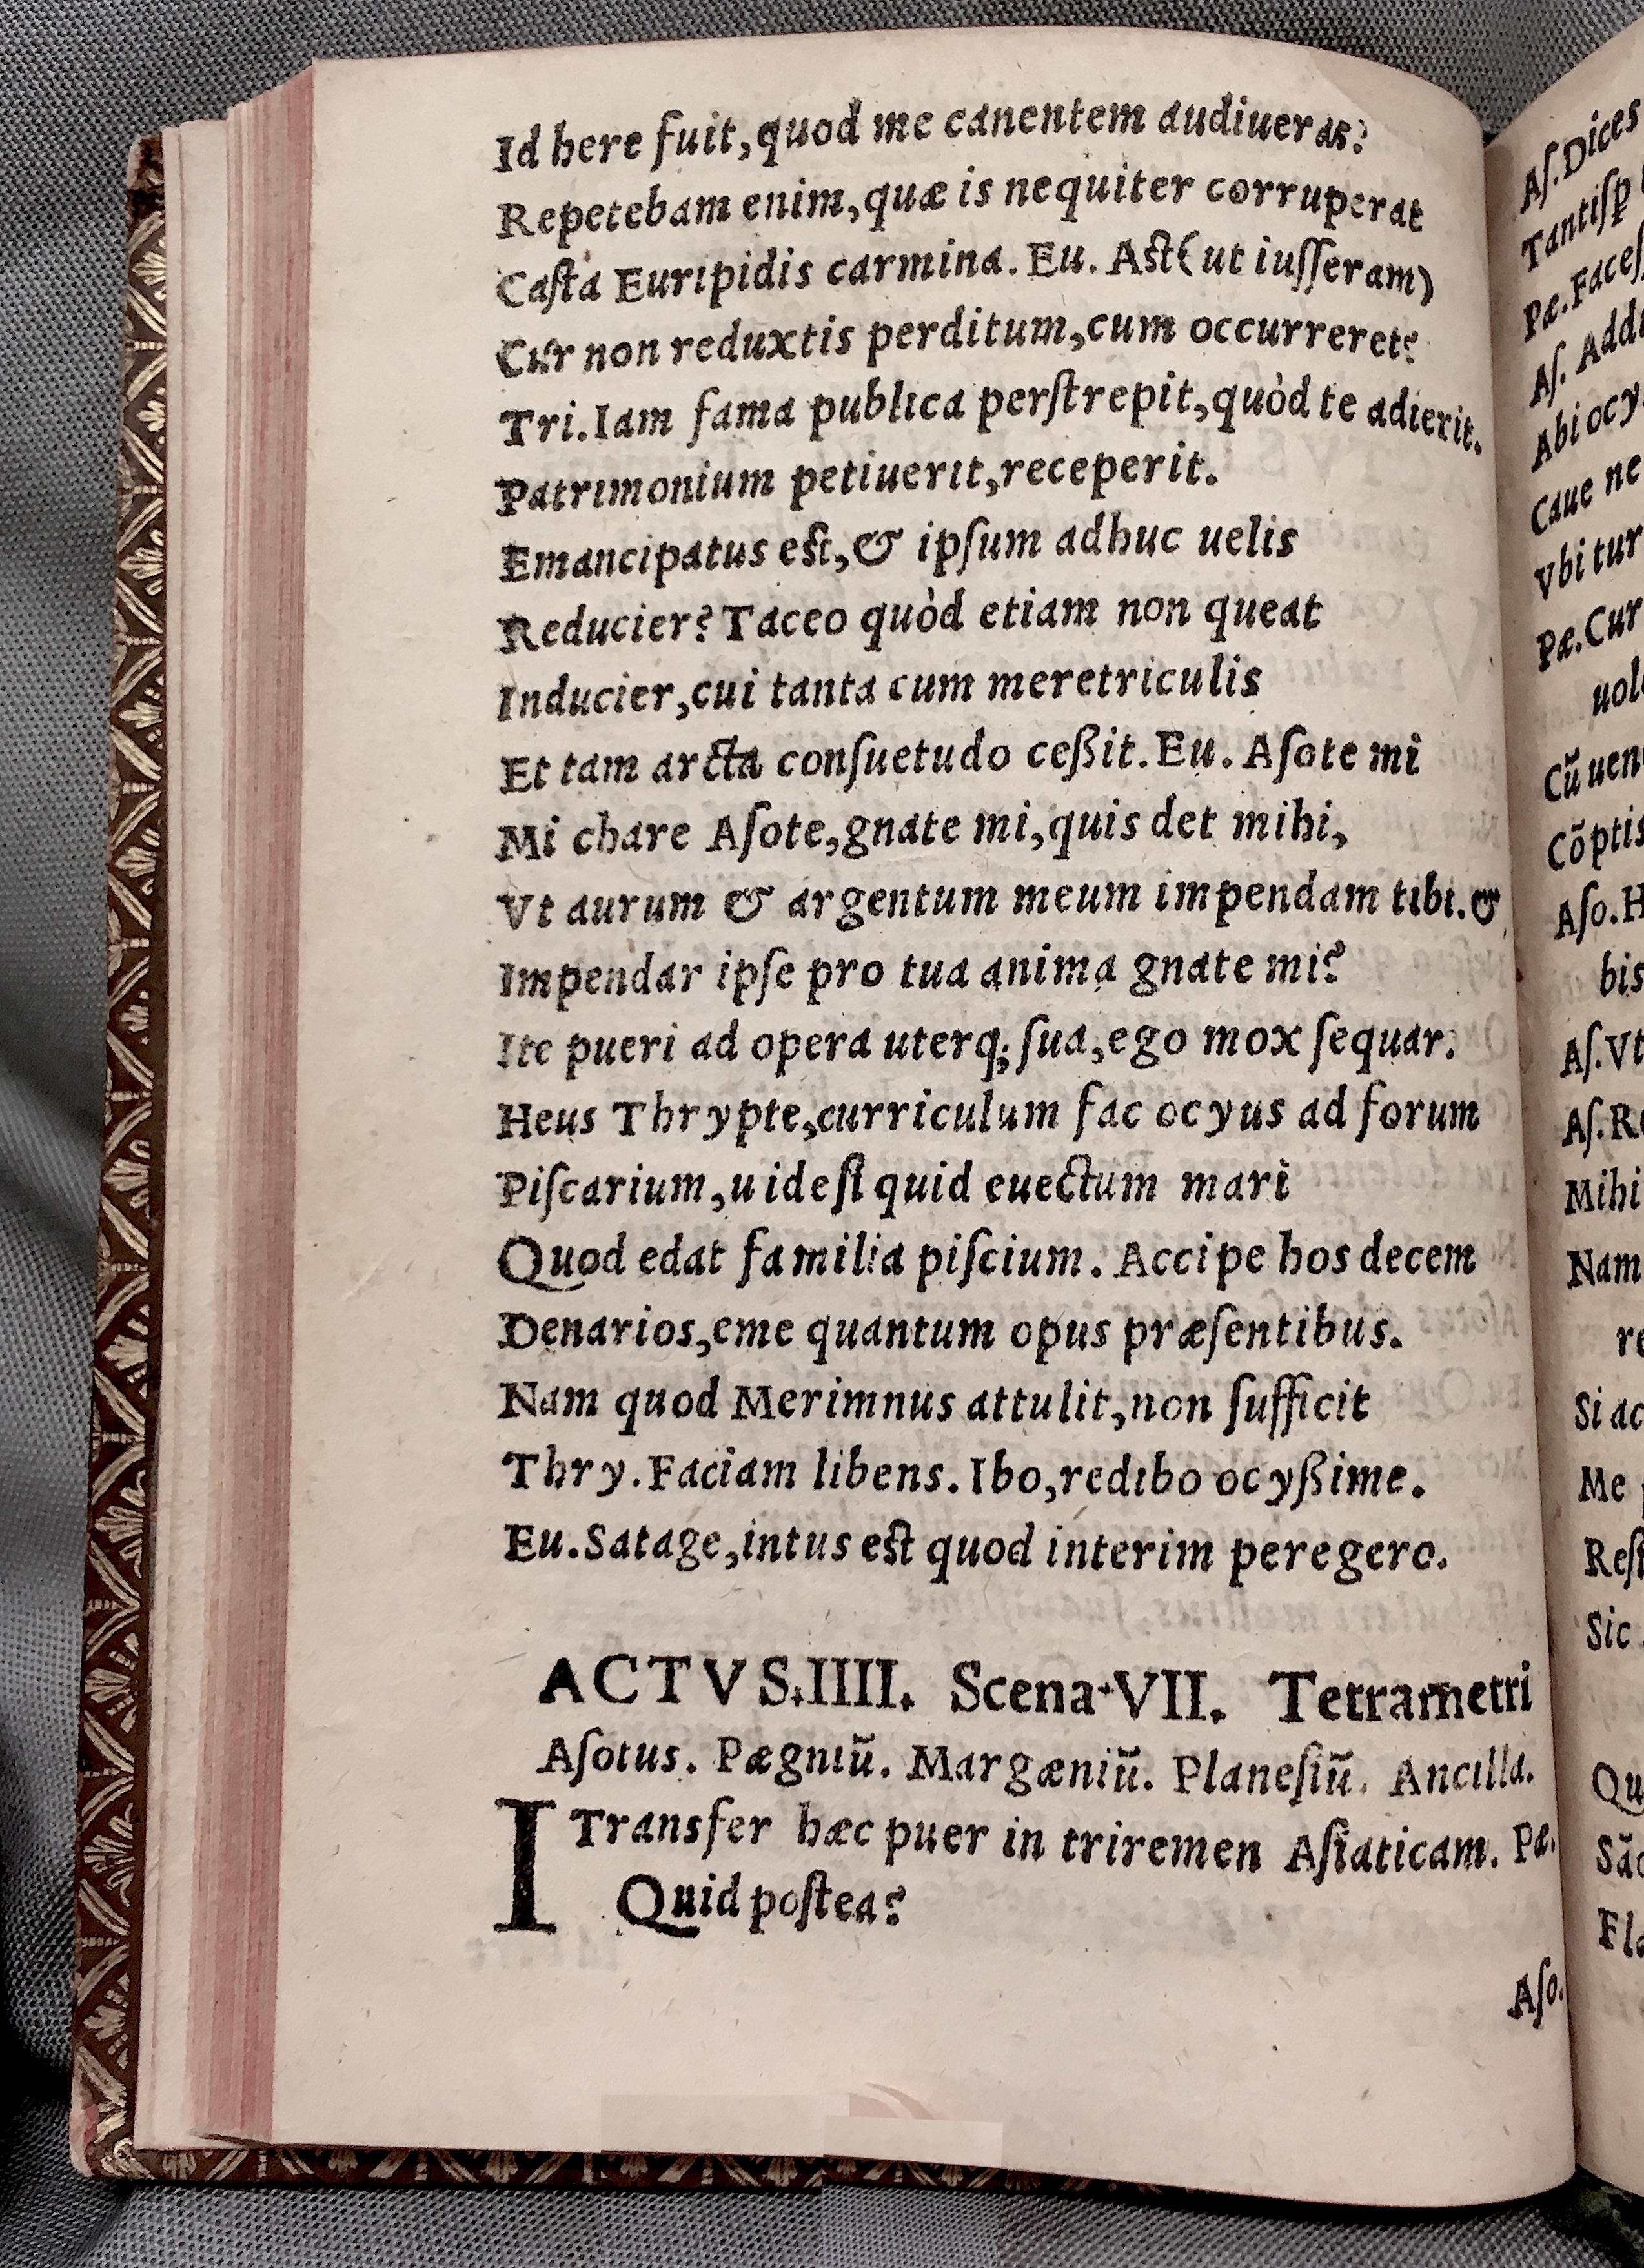 Id here fuit, quod me canentem audiueras?
Repetebam enim, quæ is nequiter corruperat
Caſta Euripidis carmina. Eu. Aſt (ut iuſſeram)
Cur non reduxtis perditum, cum occurreret?
Tri. Iam fama publica perſtrepit, quòd te adierit.
Patrimonium petiuerit, receperit.
Emancipatus eſt, & ipſum adhuc uelis
Reducier? Taceo quòd etiam non queat
Inducier, cui tanta cum meretriculis
Et tam arcta conſuetudo ceßit. Eu. Aſote mi
Mi chare Aſote, gnate mi, quis det mihi,
Vt aurum & argentum meum impendam tibi. &
Impendar ipſe pro tua anima gnate mi?
Ite pueri ad opera uterq; ſua, ego mox ſequar.
Heus Thrypte, curriculum fac ocyus ad forum
Piſcarium, uide ſi quid euectum mari
Quod edat familia piſcium. Accipe hos decem
Denarios, eme quantum opus præſentibus.
Nam quod Merimnus attulit, non ſufficit
Thry. Faciam libens. Ibo, redibo ocyßime.
Eu. Satage, intus eſt quod interim peregero.
ACTVS. IIII. Scena VII. Tetrametri
Aſotus. Pægniū. Margæniū. Planeſiū. Ancilla.
I Transfer hæc puer in triremen Aſiaticam. Pæ.
Quid poſtea?
Aſo.
Aſ. Dices
Tantiſp
Pæ. Faceſ
Aſ. Add
Abi ocy
Caue ne
Vbi tur
Pæ. Cur
uol
Cū uen
Cōptis
Aſo. H
bis
Aſ. Vt
Aſ. R
Mihi
Nam
re
Si ac
Me
Reſt
Sic
Qu
Fl